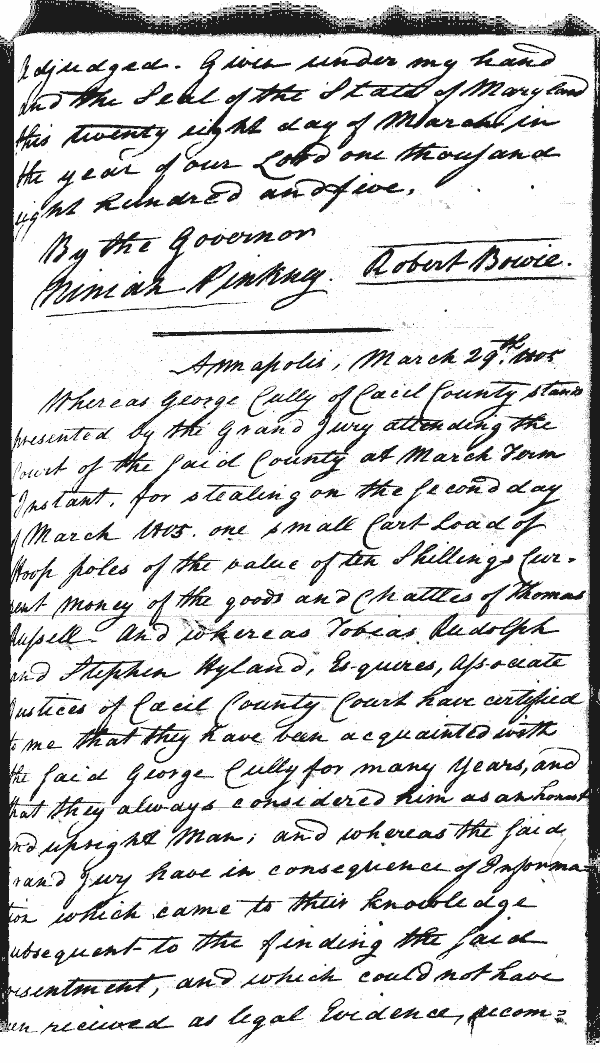 Adjudged. Given under my hand
and the Seal of the State of Maryland
this twenty eight day of March in
the year of our Lord one thousand
eight hundred and five.
By the Governor
Ninian Pinkney. Robert Bowie.
Annapolis, March 29th. 1805
Whereas George Cully of Cæcil County stands
presented by the Grand Jury attending the
Court of the Said County at March Term
Instant, for stealing on the Second day
of March 1805. one small Cart Load of
Hoop poles of the value of ten Shillings Cur-
rent money of the goods and Chattles of Thomas
Russell. And whereas Tobias Rudolph
and Stephen Hyland, Esquires, Associate
Justices of Cæcil County Court have certified
to me that they have been acquainted with
the Said George Cully for many Years, and
that they always considered him as an honest
and upright Man; and whereas the Said
Grand Jury have in consequence of Informa-
tion which came to their knowledge
subsequent to the finding the Said
presentment, and which could not have
been recieved as legal Evidence, recom=